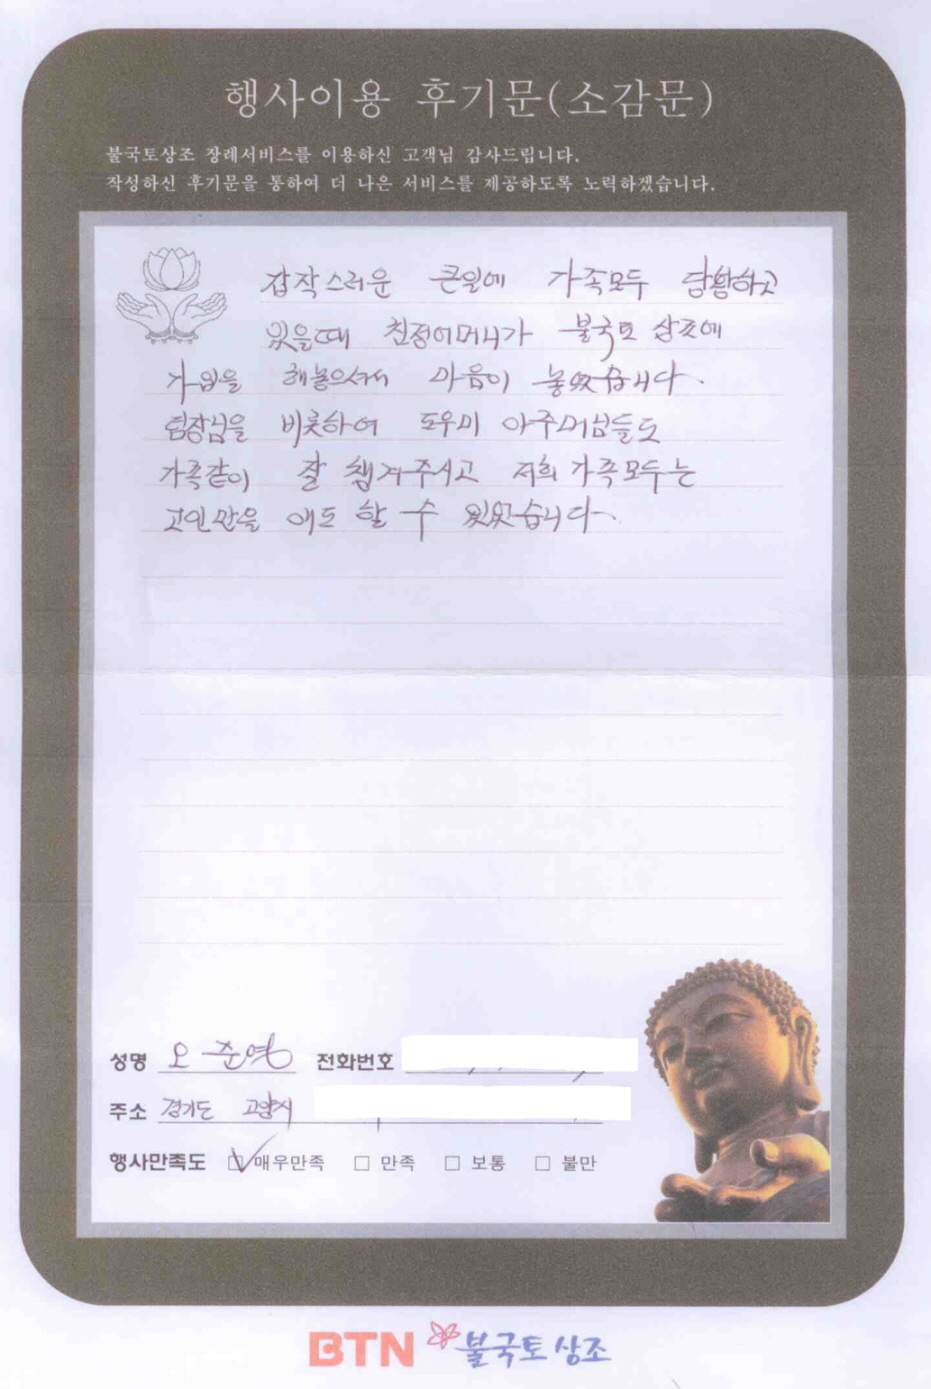 행사이용 후기문(소감문)
불국토상조 장례서비스를 이용하신 고객님 감사드립니다.
작성하신 후기문을 통하여 더 나은 서비스를 제공하도록 노력하겠습니다.
갑작스러운 큰일에 가족모두 당황하고
있을때 친정어머니가 불국토 상조에
가입을 해놓으셔서 마음이 놓였습니다.
팀장님을 비롯하여 도우미 아주머님들도
가족같이 잘 챙겨주시고 저희 가족모두는
고인만을 애도 할 수 있었습니다.
성명 오준영 전화번호
주소 경기도 고양시
행사만족도 매우만족 만족 보통 불만
BTN 불국토 상조